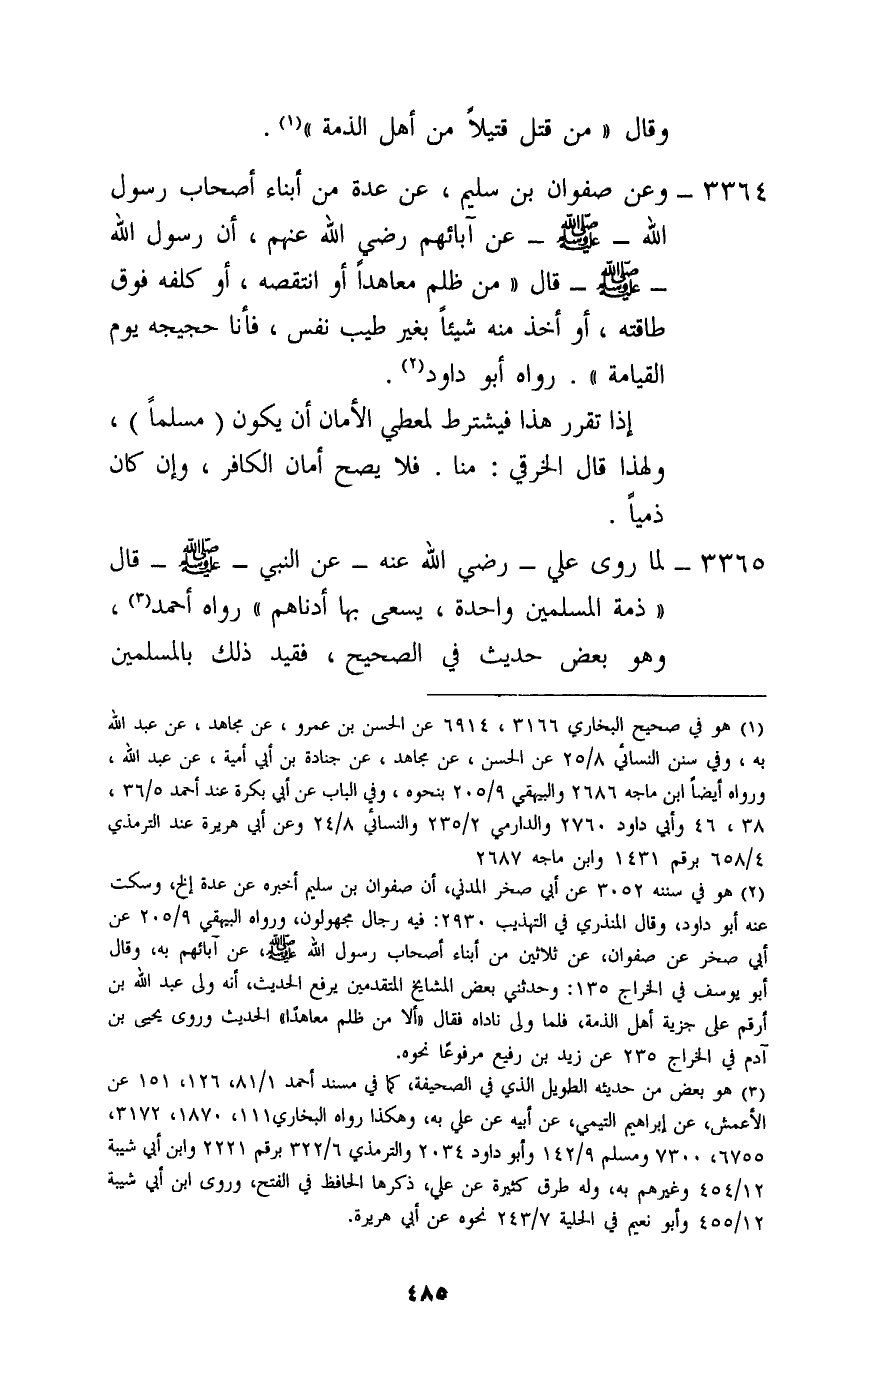 وقال « من قتل قتيلاً من أهل الذمة »(١) .
٣٣٦٤ ــ وعن صفوان بن سليم ، عن عدة من أبناء أصحاب رسول
الله ــ ﷺ ــ عن آبائهم رضي الله عنهم ، أن رسول الله
ــ ﷺ ــ قال « من ظلم معاهداً أو انتقصه ، أو كلفه فوق
طاقته ، أو أخذ منه شيئاً بغير طيب نفس ، فأنا حجيجه يوم
القيامة » . رواه أبو داود(٢) .
إذا تقرر هذا فيشترط لمعطي الأمان أن يكون ( مسلماً ) ،
ولهذا قال الخرقي : منا . فلا يصح أمان الكافر ، وإن كان
ذمياً .
٣٣٦٥ ــ لما روى علي ــ رضي الله عنه ــ عن النبي ــ ﷺ ــ قال
« ذمة المسلمين واحدة ، يسعى بها أدناهم » رواه أحمد(٣) ،
وهو بعض حديث في الصحيح ، فقيد ذلك بالمسلمين
(١) هو في صحيح البخاري ٣١٦٦ ، ٦٩١٤ عن الحسن بن عمرو ، عن مجاهد ، عن عبد الله
به ، وفي سنن النسائي ٢٥/٨ عن الحسن ، عن مجاهد ، عن جنادة بن أبي أمية ، عن عبد الله ،
ورواه أيضاً ابن ماجه ٢٦٨٦ والبيهقي ٢٠٥/٩ بنحوه ، وفي الباب عن أبي بكرة عند أحمد ٣٦/٥ ،
٣٨ ، ٤٦ وأبي داود ٢٧٦٠ والدارمي ٢٣٥/٢ والنسائي ٢٤/٨ وعن أبي هريرة عند الترمذي
٦٥٨/٤ برقم ١٤٣١ وابن ماجه ٢٦٨٧
(٢) هو في سننه ٣٠٥٢ عن أبي صخر المدني، أن صفوان بن سليم أخبره عن عدة إلخ، وسكت
عنه أبو داود، وقال المنذري في التهذيب ٢٩٣٠: فيه رجال مجهولون، ورواه البيهقي ٢٠٥/٩ عن
أبي صخر عن صفوان، عن ثلاثين من أبناء أصحاب رسول الله ﷺ، عن آبائهم به، وقال
أبو يوسف في الخراج ١٣٥: وحدثني بعض المشايخ المتقدمين يرفع الحديث، أنه ولى عبد الله بن
أرقم على جزية أهل الذمة، فلما ولى ناداه فقال «ألا من ظلم معاهدًا» الحديث وروى يحيى بن
آدم في الخراج ٢٣٥ عن زيد بن رفيع مرفوعًا نحوه.
(٣) هو بعض من حديثه الطويل الذي في الصحيفة، كما في مسند أحمد ٨١/١، ١٢٦، ١٥١ عن
الأعمش، عن إبراهيم التيمي، عن أبيه عن علي به، وهكذا رواه البخاري١١١، ١٨٧٠، ٣١٧٢،
٦٧٥٥، ٧٣٠٠ ومسلم ١٤٢/٩ وأبو داود ٢٠٣٤ والترمذي ٣٢٢/٦ برقم ٢٢٢١ وابن أبي شيبة
٤٥٤/١٢ وغيرهم به، وله طرق كثيرة عن علي، ذكرها الحافظ في الفتح، وروى ابن أبي شيبة
٤٥٥/١٢ وأبو نعيم في الحلية ٢٤٣/٧ نحوه عن أبي هريرة.
٤٨٥